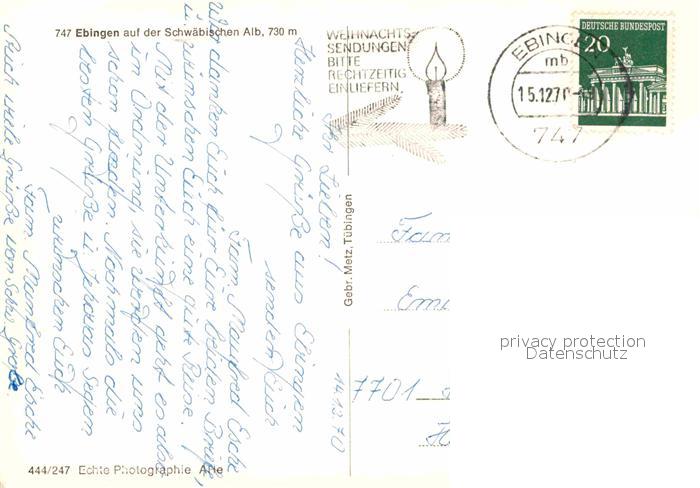 747 Ebingen auf der Schwäbischen Alb, 730 m
WEIHNACHTS-
SENDUNGEN
BITTE
RECHTZEITIG
EINLIEFERN.
EBINGEN
mb
15.12.70
747
DEUTSCHE BUNDESPOST
20
Ihr Lieben!
Herzliche Grüße aus Ebingen
sendet Euch
Fam. Manfred
Wir danken Euch für Eure beiden Briefe,
u. wünschen Euch eine gute Reise.
Mit der Unterkunft geht es also
in Ordnung, sie werden uns
schon Nochmals die
besten Grüße u. Jehovas Segen
wünschen Euch
Fam. Manfred
Auch viele Grüße von
14.12.70
Gebr. Metz, Tübingen
Fam
Emi
7701
privacy protection
Datenschutz
444/247 Echte Photographie